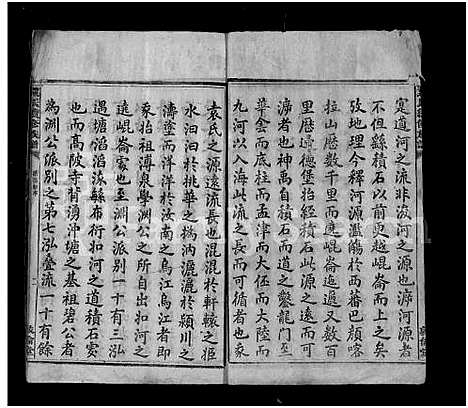 寔道河之流非浚河之源也溯河源者
不但縣積石以前更越崐崙之上之矣
攷地理今釋河源濫觴於西蕃巴顏喀
拉山厯數千里而成崐崙迤又數百
里厯道德堡抬經積石此河之源也
溯者也神禹自積石而道之鑿龍門
華玄而底柱而孟津而大伾而大陸而
九河以入海此流之長而可供者也象
袁氏之源遠流長也混混於軒轅之姫
水汩汩於桃華之㵎汭灑灑於潁川之
濤塗而洋洋於汝南之烏江烏江者即
象抬溥泉學渊公之所自出如河之
遶崐崙處也至渊公派別一十有三泓
遇塘滔滔流縣布衍如河之道積石處
也而高陂寺背湧沖塘之基祖碧公者
為渊公派別之第七泓叠流一十有餘